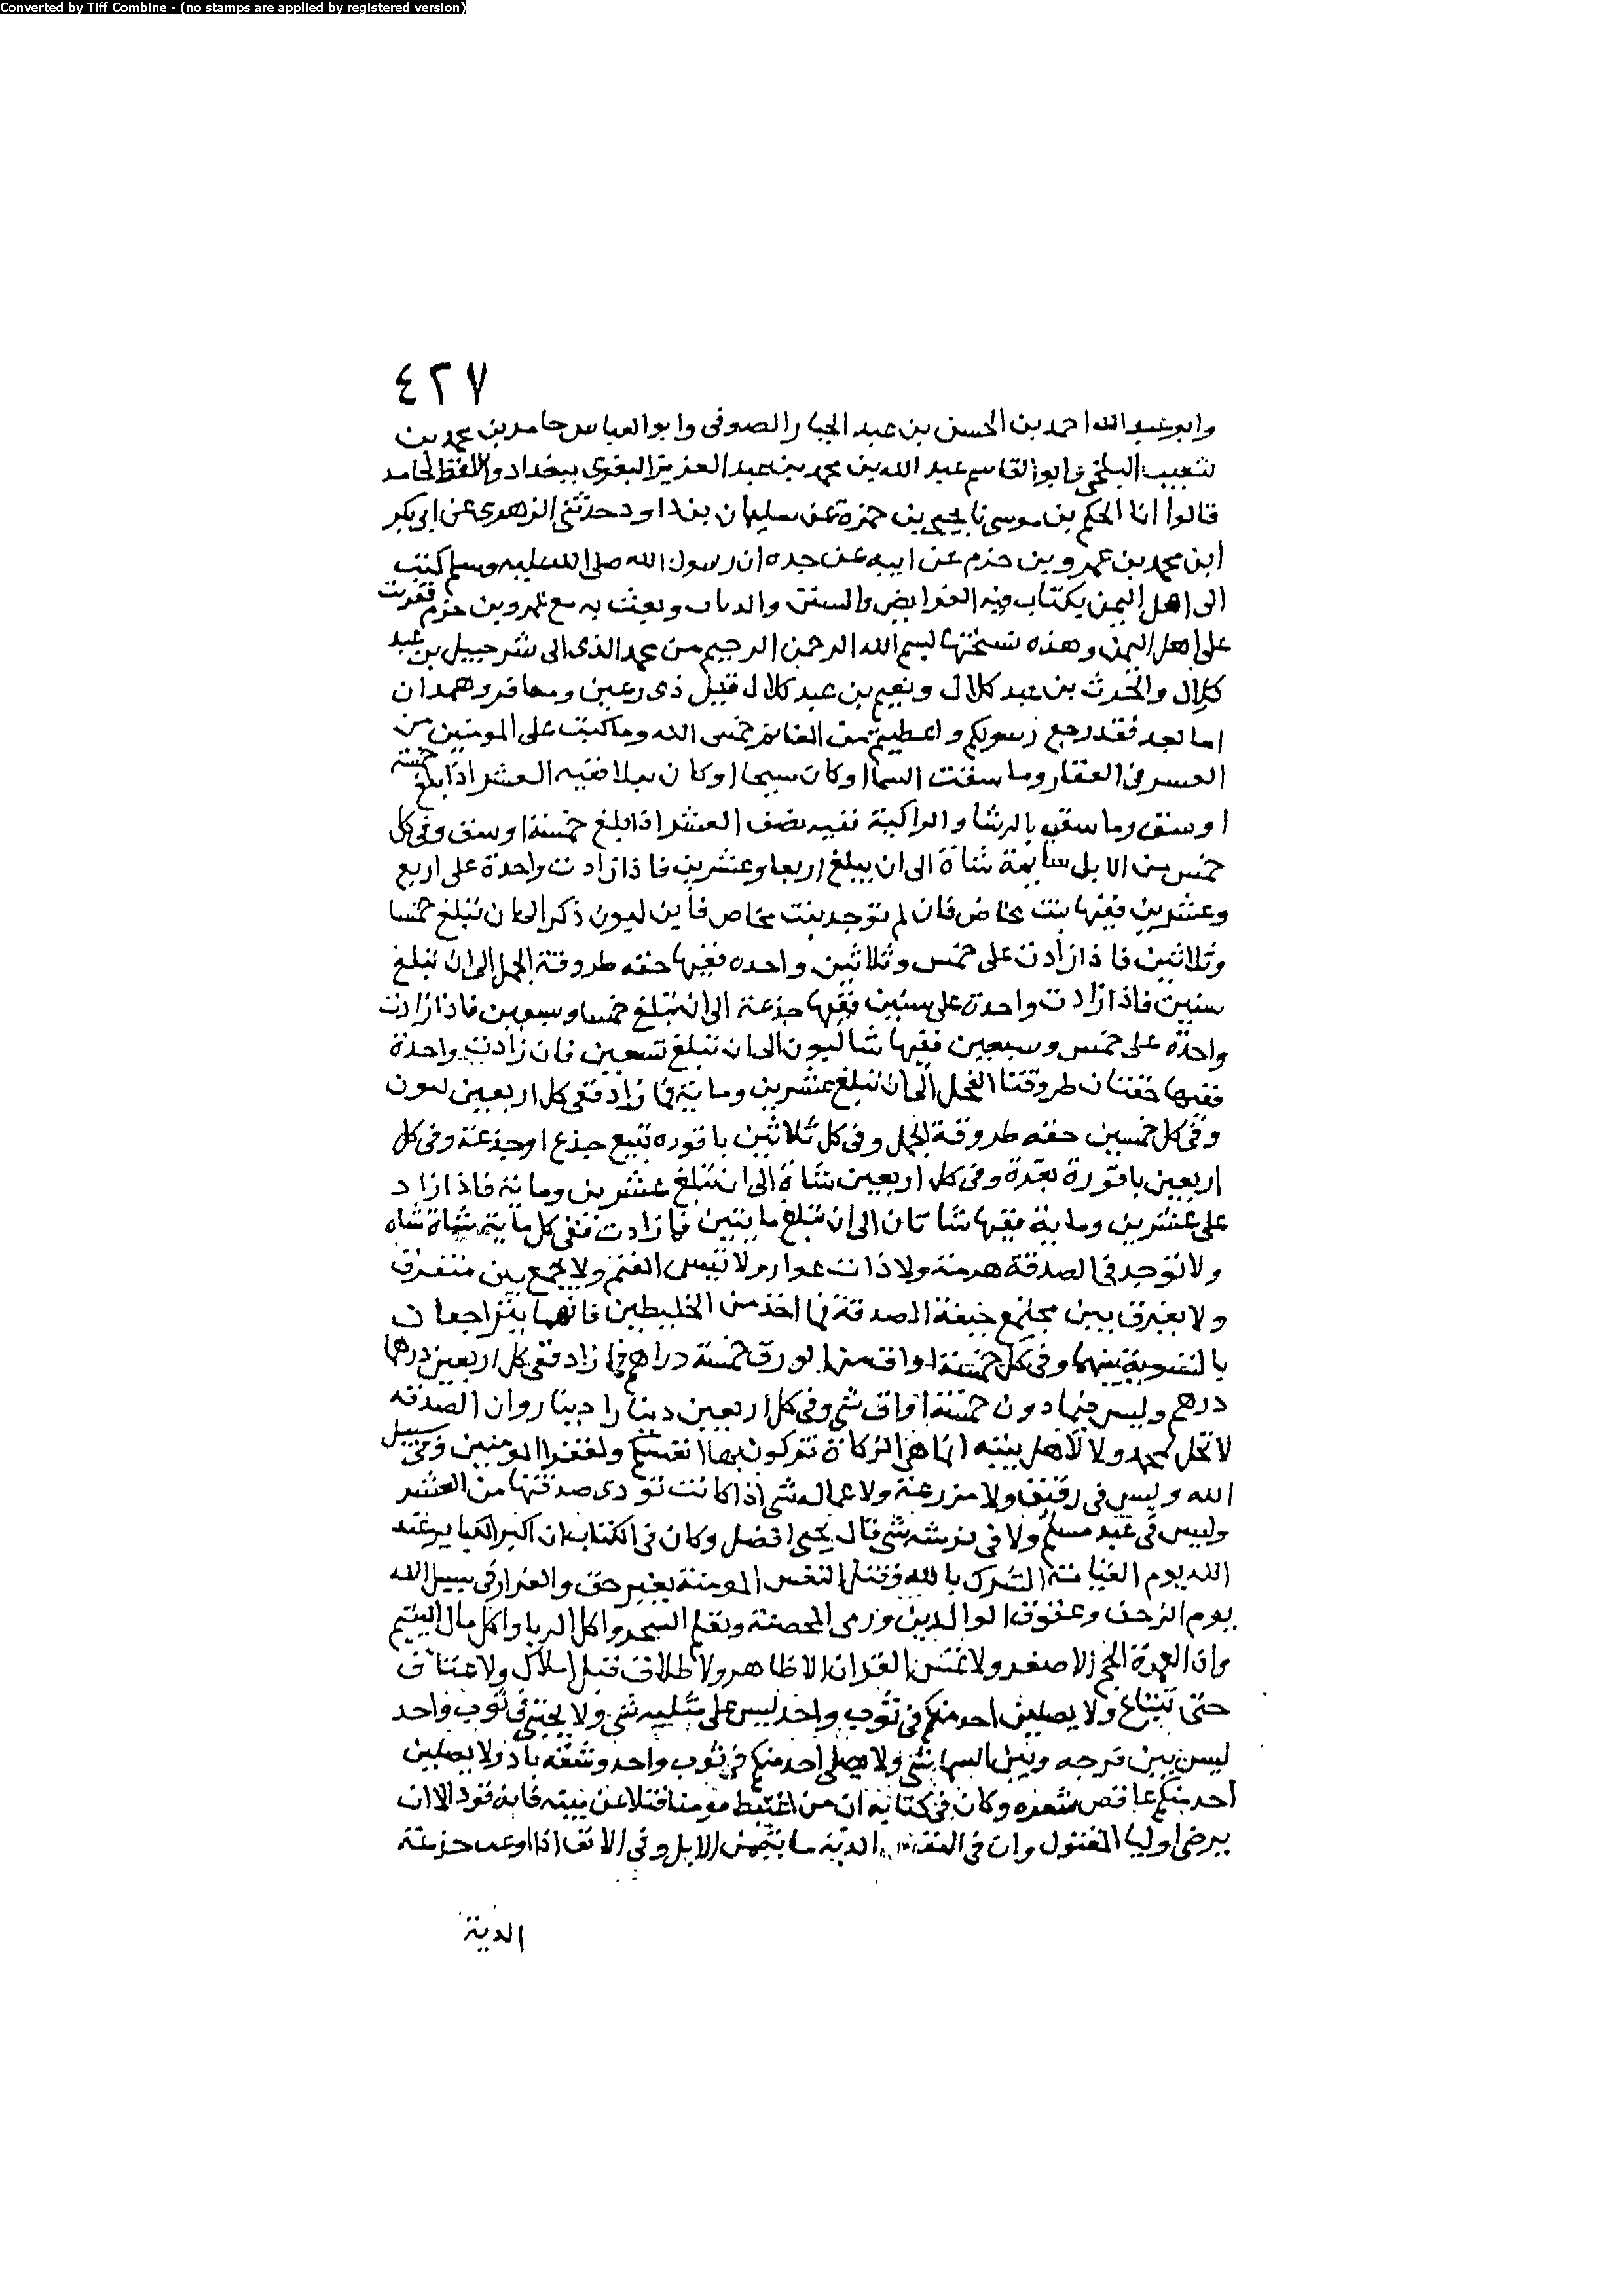 Converted by Tiff Combine - (no stamps are applied by registered version)
٤٢٧
وابو عبد الله احمد بن الحسن بن عبد الجبار الصوفي وابو العباس حامد بن محمد بن
شعيب البلخي وابو القاسم عبد الله بن محمد بن عبد العزيز البغوي ببغداد واللفظ لحامد
قالوا انا الحكم بن موسى نا يحيى بن حمزة عن سليمان بن داود حدثني الزهري عن ابي بكر
ابن محمد بن عمرو بن حزم عن ابيه عن جده ان رسول الله صلى الله عليه وسلم كتب
الى اهل اليمن بكتاب فيه الفرايض والسنن والديات وبعث به مع عمرو بن حزم فقرئت
على اهل اليمن وهذه نسختها بسم الله الرحمن الرحيم من محمد الذى الى شرحبيل بن عبد
كلال والحرث بن عبد كلال ونعيم بن عبد كلال قيل ذي رعين ومعافر وهمدان
اما بعد فقد رجع رسولكم واعطيتم من الغانم خمس الله وما كتب على المومنين من
العسر في العقار وما سقت السما او كان سيحا او كان بعلا ففيه العشر اذا بلغ خمسة
اوسق وما سقي بالرشا والراكية ففيه نصف العشر اذا بلغ خمسة اوسق وفي كل
خمس من الابل سايمة شاة الى ان يبلغ اربعا وعشرين فاذا زادت واحدة على اربع
وعشرين ففيها بنت مخاض فان لم توجد بنت مخاض فابن لبون ذكر الى ان تبلغ خمسا
وثلاثين فاذا زادت على خمس وثلاثين واحده ففيها حقه طروقة الجمل الى ان تبلغ
ستين فاذا زادت واحدة على ستين ففيها جذعة الى ان تبلغ خمسا وسبعين فاذا زادت
واحدة على خمس وسبعين ففيها لبون الى ان تبلغ تسعين فان زادت واحدة
ففيها حقتان طروقتا الفحل الى ان تبلغ عشرين وماية فما زاد ففي كل اربعين لبون
وفي كل خمسين حقه طروقة الجمل وفي كل ثلاثين باقوره تبيع جذع او جذعة وفي كل
اربعين باقورة بقرة وفي كل اربعين شاة الى ان تبلغ عشرين وماية فاذا زاد
على عشرين وماية ففيها شاتان الى ان تبلغ مايتين فما زادت ففي كل ماية شاة شاه
ولا توجد في الصدقة هرمة ولا ذات عوار ولا تيس الغنم ولا يجمع بين متفرق
ولا يفرق بين مجتمع خيفة الصدقة فما اخذ من الخليطين فانهما يتراجعان
بالتسوية بينهما وفي كل خمسة اواق من الورق خمسة دراهم فما زاد ففي كل اربعين درهما
درهم وليس فيما دون خمسة اواق شي وفي كل اربعين دينارا دينار وان الصدقه
لا تحل لمحمد ولا لاهل بيته انما هي الزكاة تزكون بها انفسكم ولفقرا المومنين وفي سبيل
الله وليس في رقيق ولا مزرعة ولا عماله شي اذا كانت تودى صدقتها من العشر
وليس في عبد مسلم ولا في فرسه شي قال يحيى افضل وكان في الكتاب ان اكبر الكباير عند
الله يوم القيامة الشرك بالله وقتل النفس المومنة بغير حق والفرار في سبيل الله
يوم الزحف وعقوق الوالدين ورمي المحصنة وتعلم السحر واكل الربا واكل مال اليتيم
وان العمرة الحج الاصغر ولا تمس القران الا طاهر ولا طلاق قبل املاك ولا عتاق
حتى تبتاع ولا يصلين احد منكم في ثوب واحد ليس على شي ولا يحتبي في ثوب واحد
ليس بين فرجه وبين السما شي ولا يصلي احد منكم في ثوب واحد وشقه باد ولا يصلين
احد منكم عاقص شعره وكان في كتابه ان من اعتبط مومنا قتلا عن بينه فانه قود الا ان
يرضى اوليا المقتول وان في النفس الدية ماية من الابل وفي الانف اذا اوعب جزعة
الدية